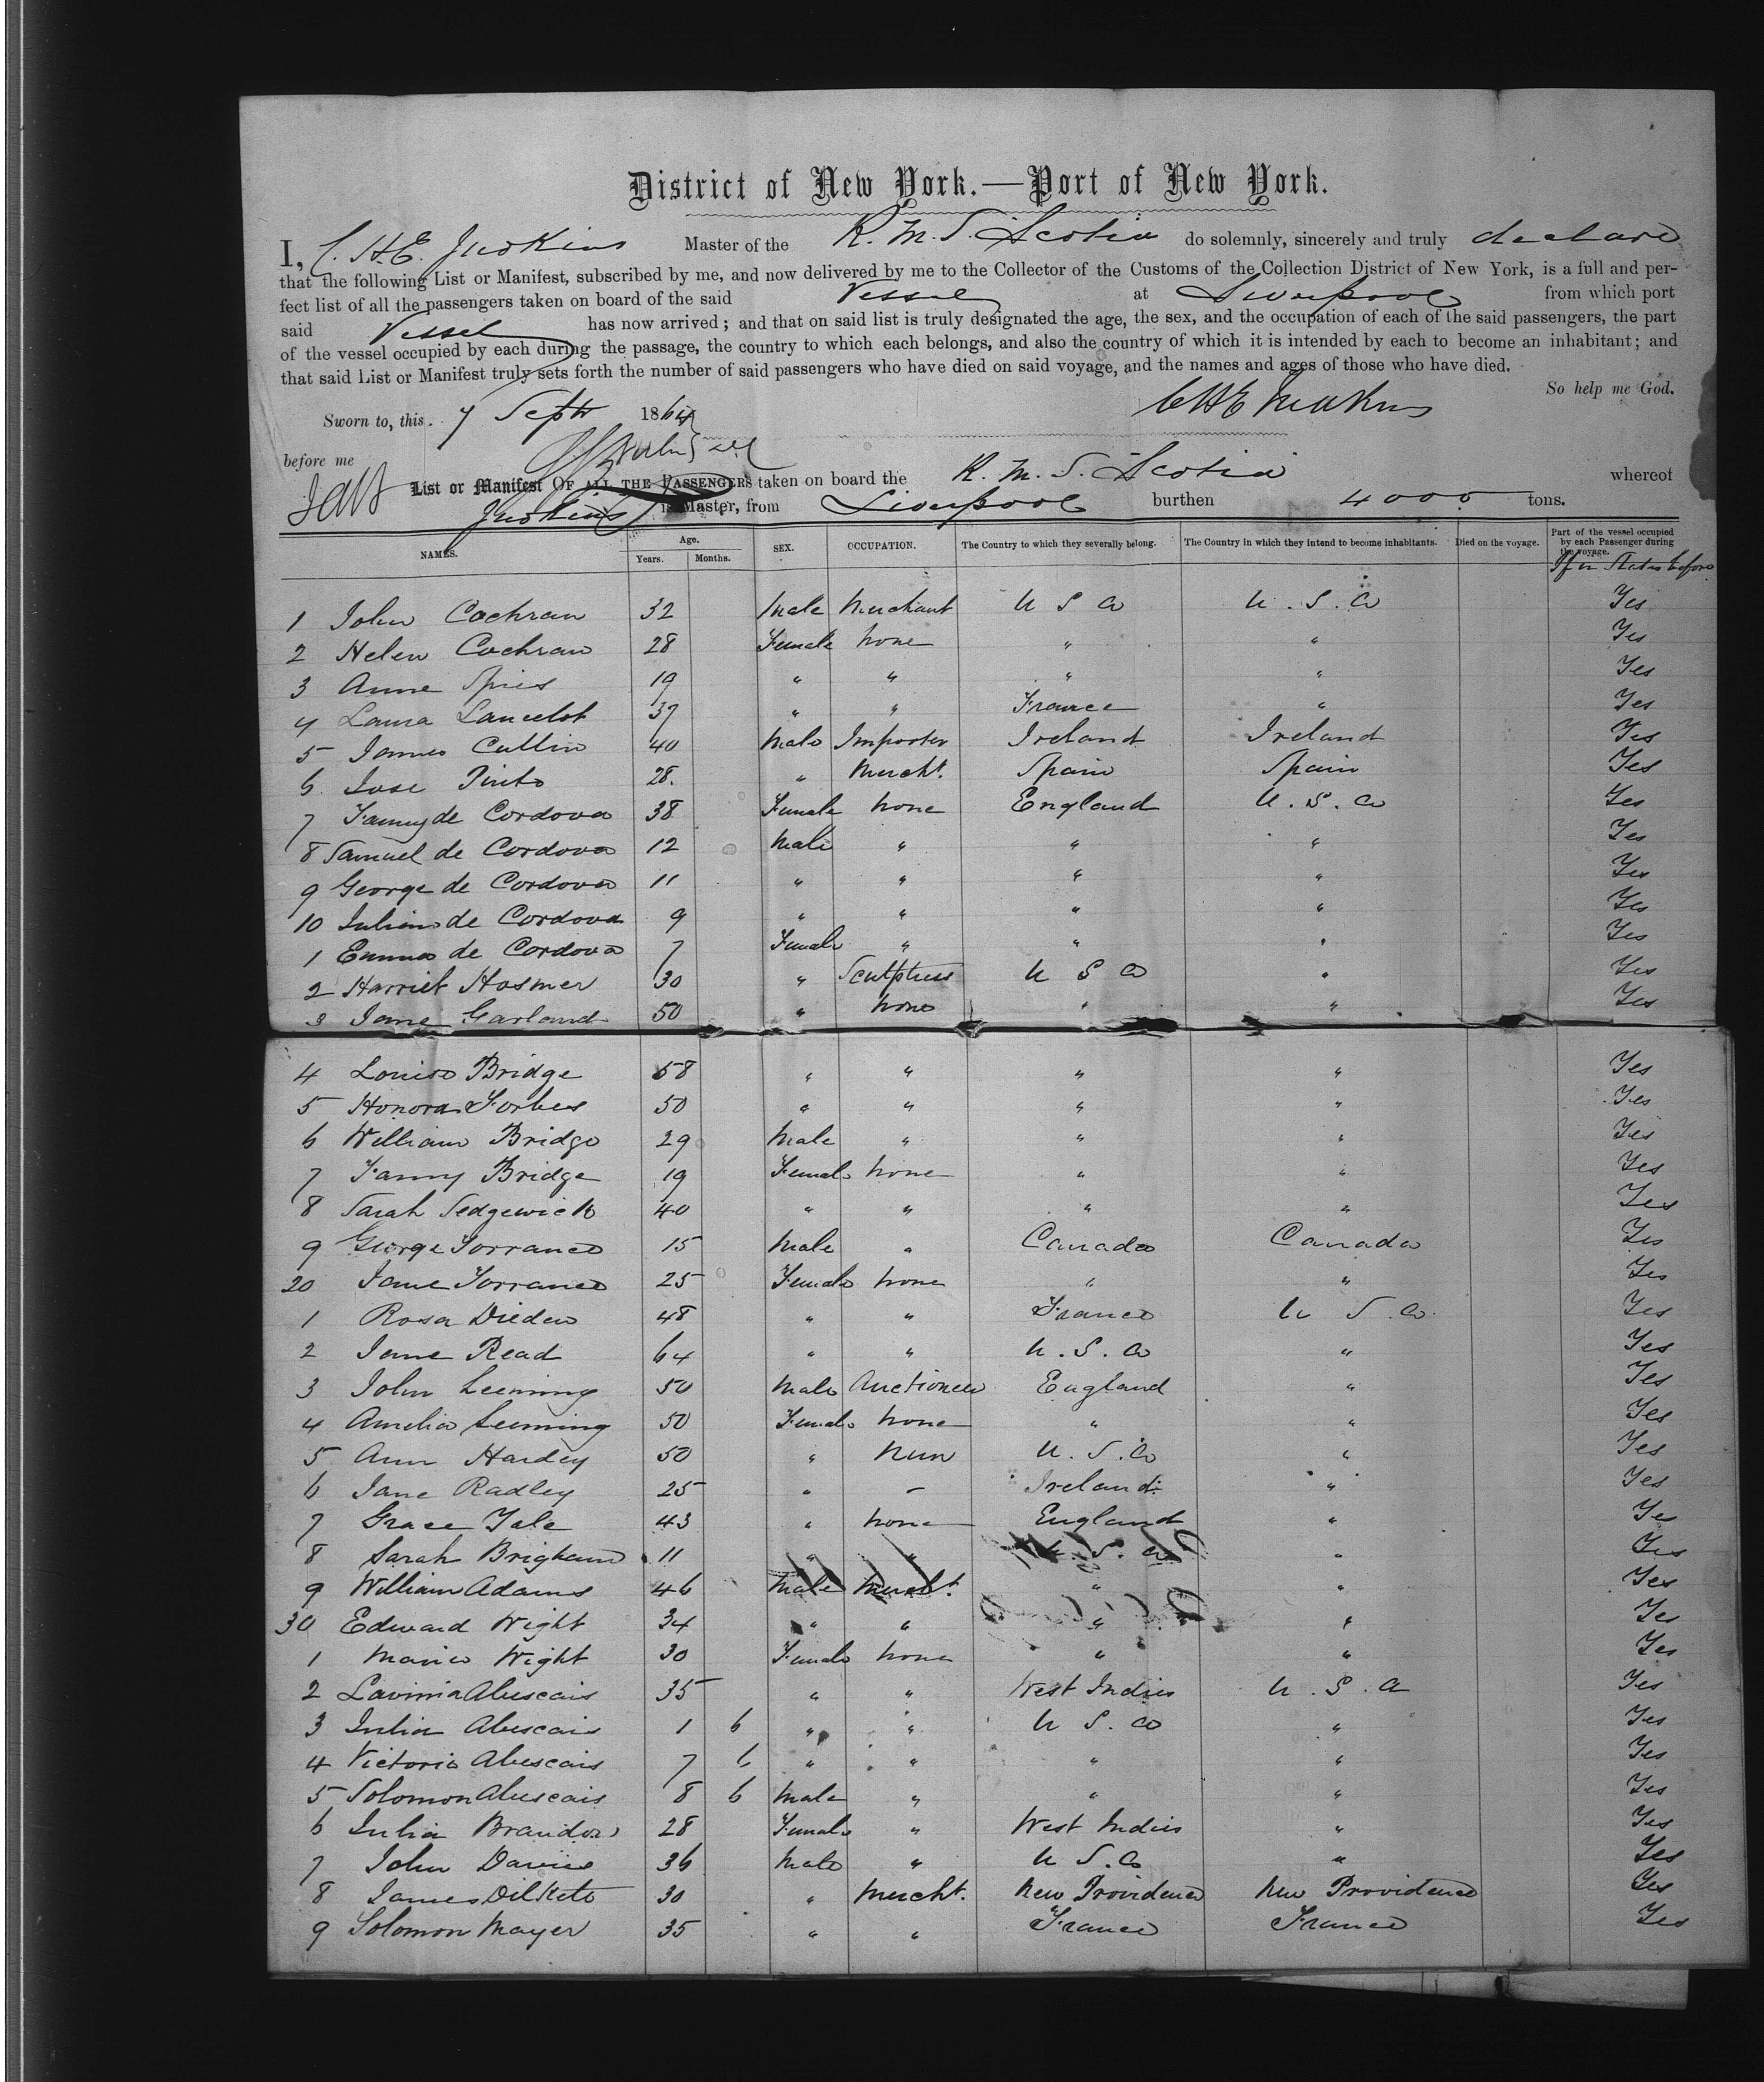 District of New York.—Port of New York.
I, C. H. E. Judkins Master of the R. M. S. Scotia do solemnly, sincerely and truly declare
that the following List or Manifest, subscribed by me, and now delivered by me to the Collector of the Customs of the Collection District of New York, is a full and per-
fect list of all the passengers taken on board of the said Vessel at Liverpool from which port
said Vessel has now arrived; and that on said list is truly designated the age, the sex, and the occupation of each of the said passengers, the part
of the vessel occupied by each during the passage, the country to which each belongs, and also the country of which it is intended by each to become an inhabitant; and
that said List or Manifest truly sets forth the number of said passengers who have died on said voyage, and the names and ages of those who have died.
So help me God.
Sworn to, this 7 Septr 1864 CHE Judkins
before me
List or Manifest OF ALL THE PASSENGERS taken on board the R. M. S. Scotia whereof
Judkins is Master, from Liverpool burthen 4000 tons.
NAMES. Age. Years. Months. SEX. OCCUPATION. The Country to which they severally belong. The Country in which they intend to become inhabitants. Died on the voyage. Part of the vessel occupied by each Passenger during the voyage.
If in States before
1 John Cochran 32 Male Merchant U S A U. S. A Yes
2 Helen Cochran 28 Female None " " Yes
3 Anne Spies 19 " " " " Yes
4 Laura Lancelot 37 " " France " Yes
5 James Cullin 40 Male Importer Ireland Ireland Yes
6 Jose Pinto 28. " Mercht. Spain Spain Yes
7 Fanny de Cordova 38 Female None England U. S. A Yes
8 Samuel de Cordova 12 Male " " " Yes
9 George de Cordova 11 " " " " Yes
10 Julian de Cordova 9 " " " " Yes
1 Emma de Cordova 7 Female " " " Yes
2 Harriet Hosmer 30 " Sculptress U S A " Yes
3 Jane Garland 50 " None " " Yes
4 Louisa Bridge 58 " " " " Yes
5 Honora Forbes 50 " " " " Yes
6 William Bridge 29 Male " " " Yes
7 Fanny Bridge 19 Female None " " Yes
8 Sarah Sedgewick 40 " " " " Yes
9 George Torrance 15 Male " Canada Canada Yes
20 Jane Torrance 25 Female None " " Yes
1 Rosa Dieden 48 " " France U S. A. Yes
2 Jane Read 64 " " U. S. A " Yes
3 John Leeming 50 Male Auctioneer England " Yes
4 Amelia Leeming 50 Female None " " Yes
5 Ann Hardey 50 " Nun U. S. A " Yes
6 Jane Radley 25 " – Ireland " Yes
7 Grace Yale 43 " None England " Ye
8 Sarah Brigham 11 " " U. S. A " Yes
9 William Adams 46 Male Mercht. " " Yes
30 Edward Wight 34 " " " " Yes
1 Maria Wight 30 Female None " " Yes
2 Lavinia Abecais 35 " " West Indies U. S. A Yes
3 Julia Abecais 1 6 " " U S. A " Yes
4 Victoria Abecais 7 6 " " " " Yes
5 Solomon Abecais 8 6 Male " " " Yes
6 Julia Brandon 28 Female " West Indies " Yes
7 John Davies 36 Male " U S. A " Yes
8 James 30 " Mercht. New Providence New Providence Yes
9 Solomon Mayer 35 " " France France Yes